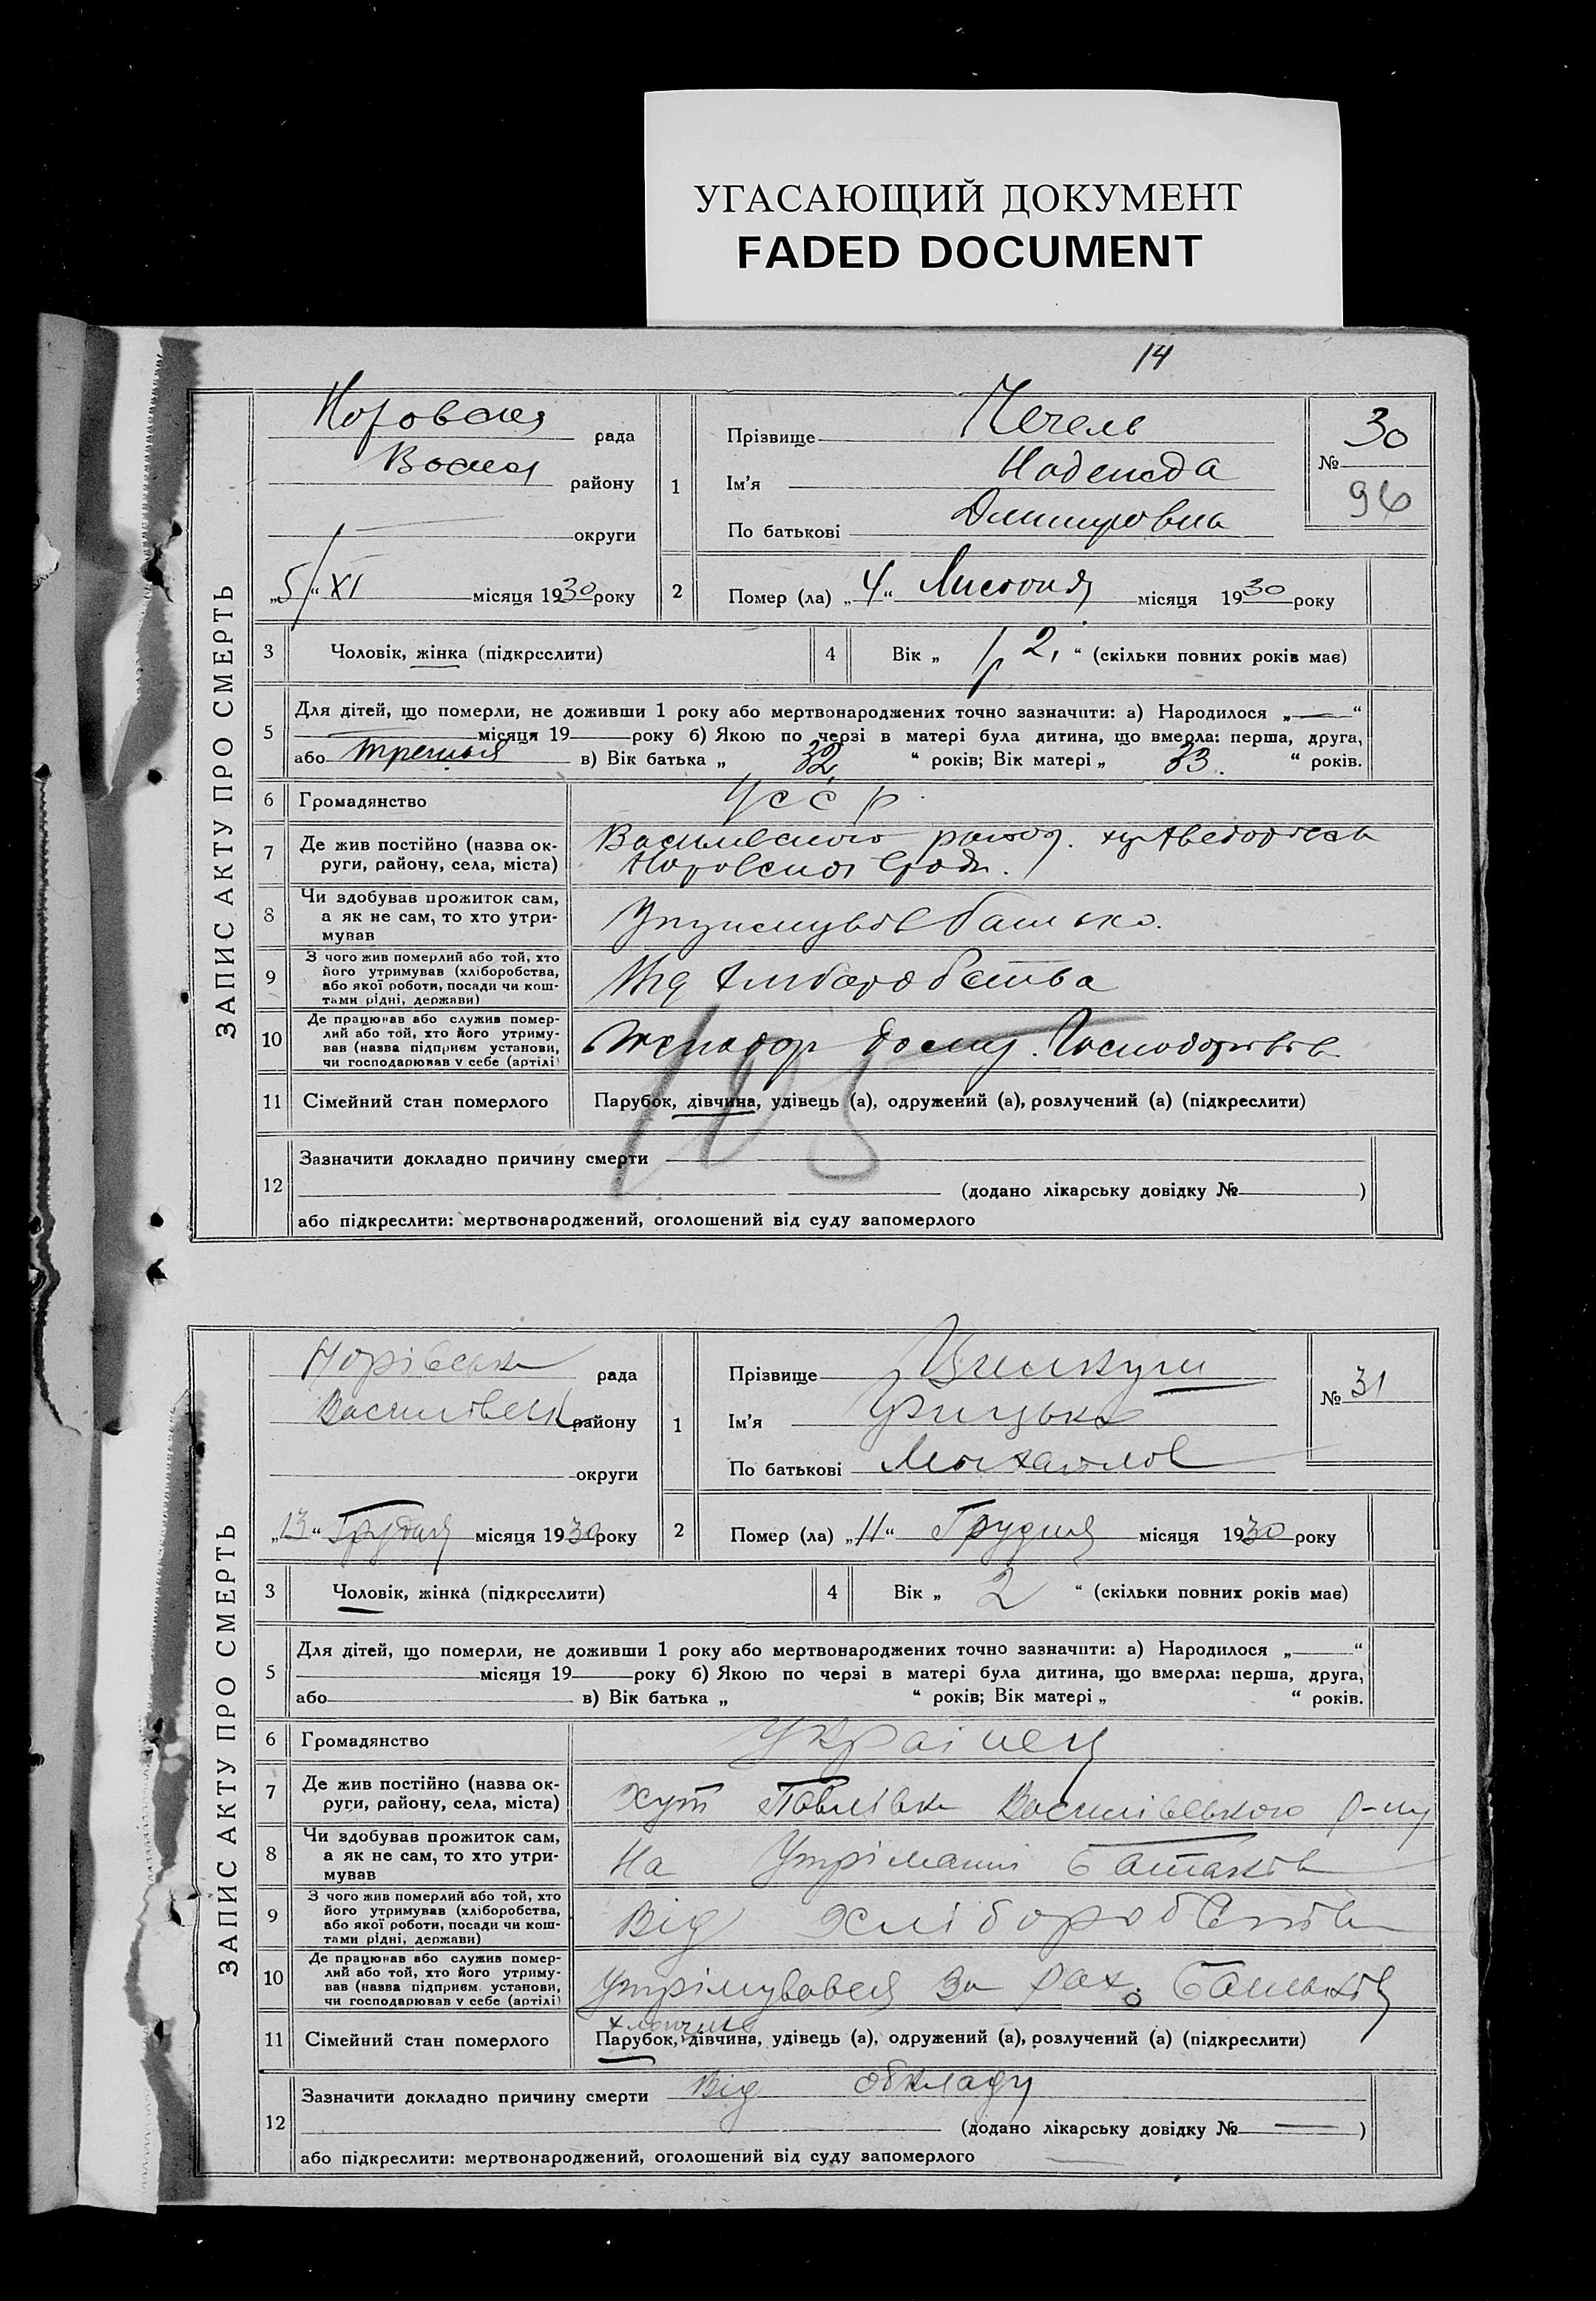 УГАСАЮЩИЙ ДОКУМЕНТ
FADED DOCUMENT
14
ЗАПИС АКТУ ПРО СМЕРТЬ
рада
району
округи
„5“ XI місяця 1930 року
1
Прізвище Печель
Ім'я Надежда
По батькові
№ 30
96
2 Помер (ла) „4“ Листопад місяця 1930 року
3 Чоловік, жінка (підкреслити)
4 Вік „ 2, “ (скільки повних років має)
5 Для дітей, що померли, не доживши 1 року або мертвонароджених точно зазначити: а) Народилося „—“
місяця 19 року б) Якою по черзі в матері була дитина, що вмерла: перша, друга,
або третья в) Вік батька „ 32 “ років; Вік матері „ 33. “ років.
6 Громадянство УССР
7 Де жив постійно (назва округи, району, села, міста)
8 Чи здобував прожиток сам, а як не сам, то хто утримував батько.
9 З чого жив померлий або той, хто його утримував (хліборобства, або якої роботи, посади чи коштами рідні, держави)
10 Де працював або служив померлий або той, хто його утримував (назва підприєм установи, чи господарював у себе (артілі)
105
11 Сімейний стан померлого Парубок, дівчина, удівець (а), одружений (а), розлучений (а) (підкреслити)
12 Зазначити докладно причину смерти
(додано лікарську довідку № )
або підкреслити: мертвонароджений, оголошений від суду запомерлого
ЗАПИС АКТУ ПРО СМЕРТЬ
Норівська рада
Василівськ району
округи
„13“ Грудня місяця 1930 року
1
Прізвище
Ім'я Грицько
По батькові Михайлов
№ 31
2 Помер (ла) „11“ Грудня місяця 1930 року
3 Чоловік, жінка (підкреслити)
4 Вік „ 2 “ (скільки повних років має)
5 Для дітей, що померли, не доживши 1 року або мертвонароджених точно зазначити: а) Народилося „—“
місяця 19 року б) Якою по черзі в матері була дитина, що вмерла: перша, друга,
або в) Вік батька „ “ років; Вік матері „ “ років.
6 Громадянство Українец
7 Де жив постійно (назва округи, району, села, міста) Хут Павлівка Василівського р-ну
8 Чи здобував прожиток сам, а як не сам, то хто утримував На Утріманні Батьків
9 З чого жив померлий або той, хто його утримував (хліборобства, або якої роботи, посади чи коштами рідні, держави) Від Хліборобства
10 Де працював або служив померлий або той, хто його утримував (назва підприєм. установи, чи господарював у себе (артілі) Утрімувався за рах. Батьків
11 Сімейний стан померлого Парубок, дівчина, удівець (а), одружений (а), розлучений (а) (підкреслити)
12 Зазначити докладно причину смерти Від обкладу
(додано лікарську довідку № — )
або підкреслити: мертвонароджений, оголошений від суду запомерлого